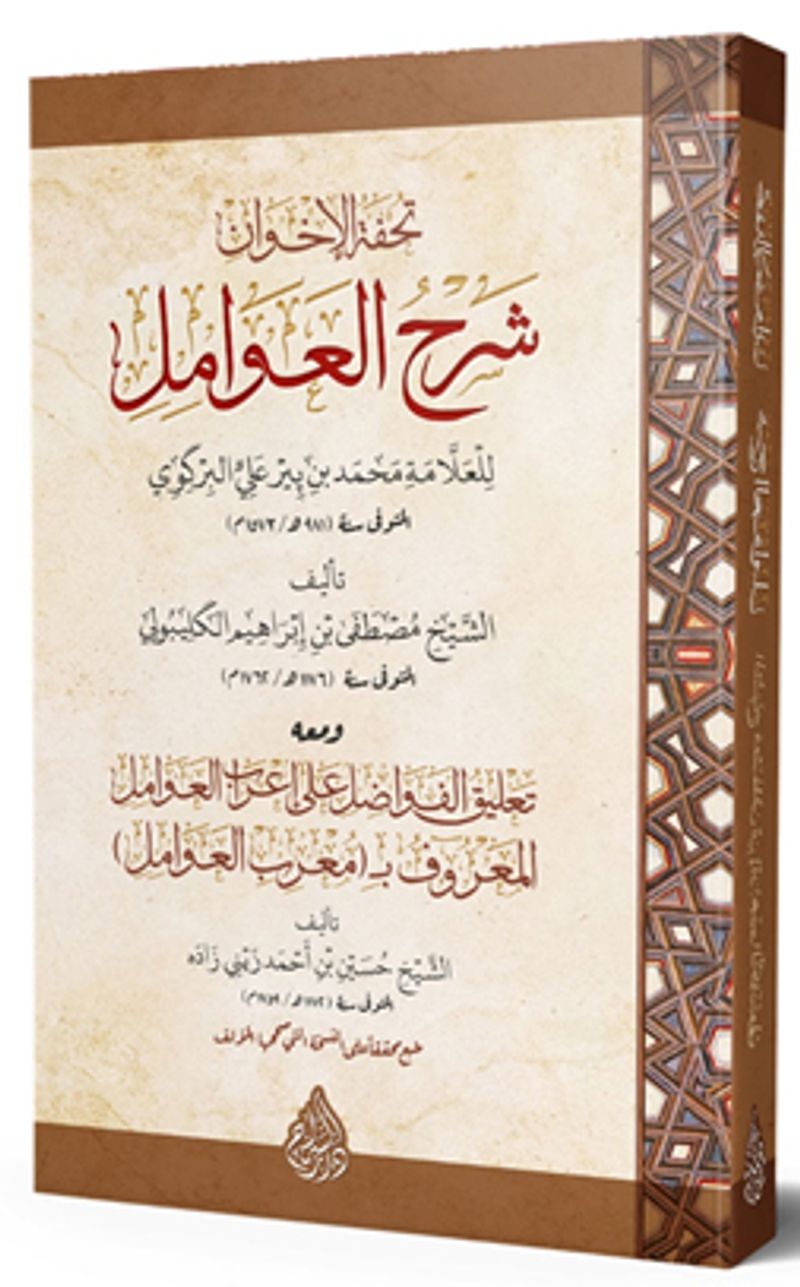 تحفة الإخوان
شَرْحُ العَوَامِلِ
لِلْعَلَّامَةِ مُحَمَّد بن بِيْر عَلِي البِرْكِوِي
المتوفى سنة (٩٨١ هـ / ١٥٧٣ م)
تأليف
الشَّيْخِ مُصْطَفَى بْنِ إِبْرَاهِيم الكَلِيبُولِي
المتوفى سنة (١١٧٦ هـ / ١٧٦٢ م)
ومعه
تعليق الفواضل على إعراب العوامل
المعروف بـ (معرب العوامل)
تأليف
الشَّيْخِ حُسَيْن بْنِ أَحْمَد زَيْنِي زَادَه
المتوفى سنة